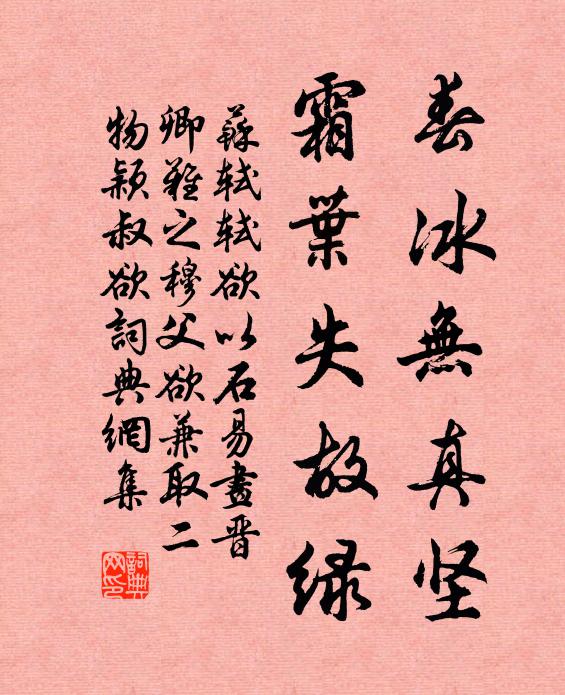 春冰無真坚
霜葉失故绿
蘇轼轼欲以石易畫晋
卿難之穆父欲兼取二
物颖叔欲詞典網集
詞典
网印